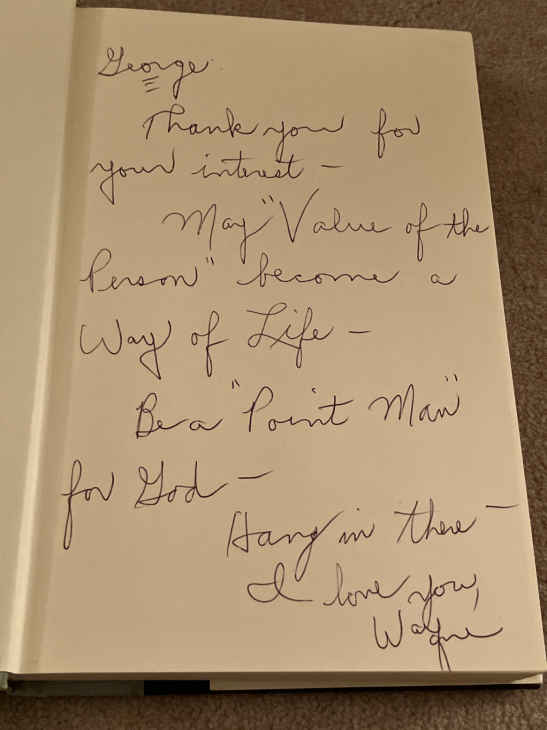 George
Thank you for
your interest –
May "Value of the
Person" become a
Way of Life –
Be a "Point Man"
for God –
Hang in there –
I love you,
Wayne